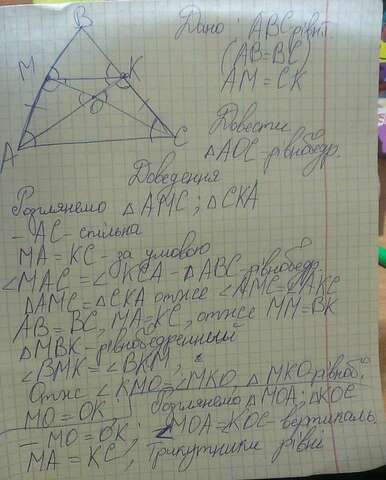 B
M
K
O
A
C
Дано: ABC-рівн.
(AB=BC)
AM = CK
Довести
△AOC-рівнобедр.
Доведення
Розглянемо △AMC; △CKA
– AC - спільна
MA = KC - за умовою
∠MAC = ∠KCA - △ABC - рівнобедр.
△AMC = △CKA отже ∠AMC = ∠AKC
AB = BC, MA = KC, отже MM = BK
△MBK - рівнобедренный
∠BMK = ∠BKM,
Отже ∠KMO = ∠MKO, △MKO рівноб.
MO = OK, Розглянемо △MOA; △KOC
– MO = OK; ∠MOA = KOC - вертикаль.
MA = KC; Трикутники рівні